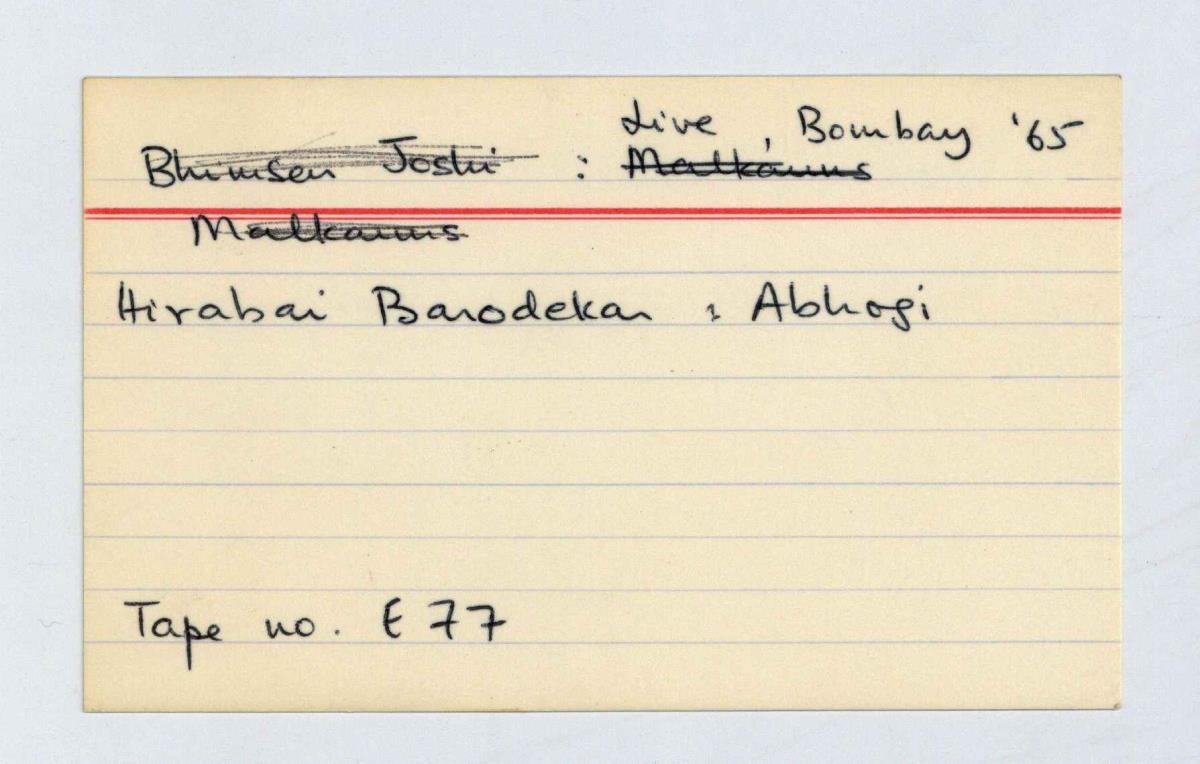 Live, Bombay '65
Bhimsen Joshi : Malkauns
Malkauns
Hirabai Barodekar : Abhogi
Tape no. E77